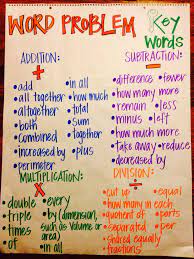 WORD PROBLEM
Key
Words
ADDITION:
+
• add • in all
• all together • how much
• altogether • total
• both • sum
• combined • together
• increased by • plus
• perimeter
SUBTRACTION:
-
• difference • fewer
• how many more
• remain • less
• minus • left
• how much less
• take away • reduce
• decreased by
MULTIPLICATION:
x
• double • every
• triple • by (dimension,
• times such as Volume or
• of area)
• in all
DIVISION:
÷
• cut up • equal
• how many in each
• quotient of • parts
• separated • per
• shared equally
• fractions